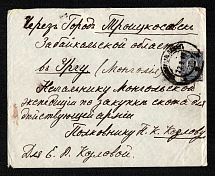 Черезъ Городъ Троицкосавскъ
Забайкальской области
въ Ургу (Монголія)
Начальнику Монгольской
экспедиціи по закупкѣ скота для
действующей арміи
Полковнику П. К. Козлову.
Для Е. В. Козловой.